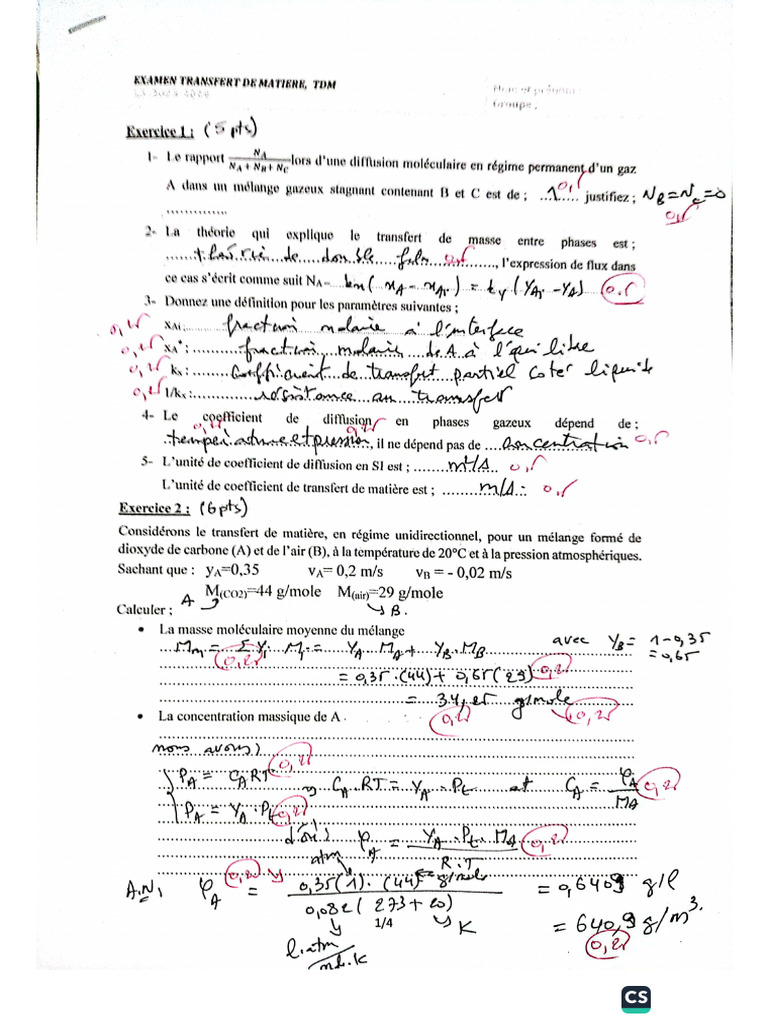 EXAMEN TRANSFERT DE MATIERE, TDM
Nom et prénom :
Groupe :
Exercice 1 : (5 pts)
1- Le rapport N_A / (N_A + N_B + N_C) lors d'une diffusion moléculaire en régime permanent d'un gaz
A dans un mélange gazeux stagnant contenant B et C est de ; ...1..... justifiez ; N_B = N_C = 0
2- La théorie qui explique le transfert de masse entre phases est ;
théorie de double film, l'expression de flux dans
ce cas s'écrit comme suit N_A = (x_A - x_Ai) = k_y (y_Ai - y_A)
3- Donnez une définition pour les paramètres suivantes ;
x_Ai : fraction molaire à l'interface
x_A* : fraction molaire de A à l'équilibre
k_x : coefficient de transfert partiel coter liquide
1/k_x : résistance au transfert
4- Le coefficient de diffusion en phases gazeux dépend de ;
température et pression, il ne dépend pas de concentration
5- L'unité de coefficient de diffusion en SI est ; m²/s
L'unité de coefficient de transfert de matière est ; m/s
Exercice 2 : (6 pts)
Considérons le transfert de matière, en régime unidirectionnel, pour un mélange formé de
dioxyde de carbone (A) et de l'air (B), à la température de 20°C et à la pression atmosphériques.
Sachant que : y_A=0,35 v_A= 0,2 m/s v_B = - 0,02 m/s
M(CO2)=44 g/mole M(air)=29 g/mole
A → B.
Calculer ;
• La masse moléculaire moyenne du mélange
M_m = Σ y_i M_i = y_A M_A + y_B M_B avec y_B = 1-0,35
= 0,65
= 0,35 · (44) + 0,65 (29)
= 34,25 g/mole
• La concentration massique de A
nous avons)
P_A = C_A RT → C_A . RT = y_A . P_t et C_A = ρ_A / M_A
P_A = y_A . P_t
d'où ρ_A = y_A . P_t . M_A / R.T
atm g/mole
A.N, ρ_A = 0,35 (1) . (44) / 0,082 (273+20) = 0,6409 g/l
1/4 K = 640,9 g/m³.
l.atm/mol.K
CS